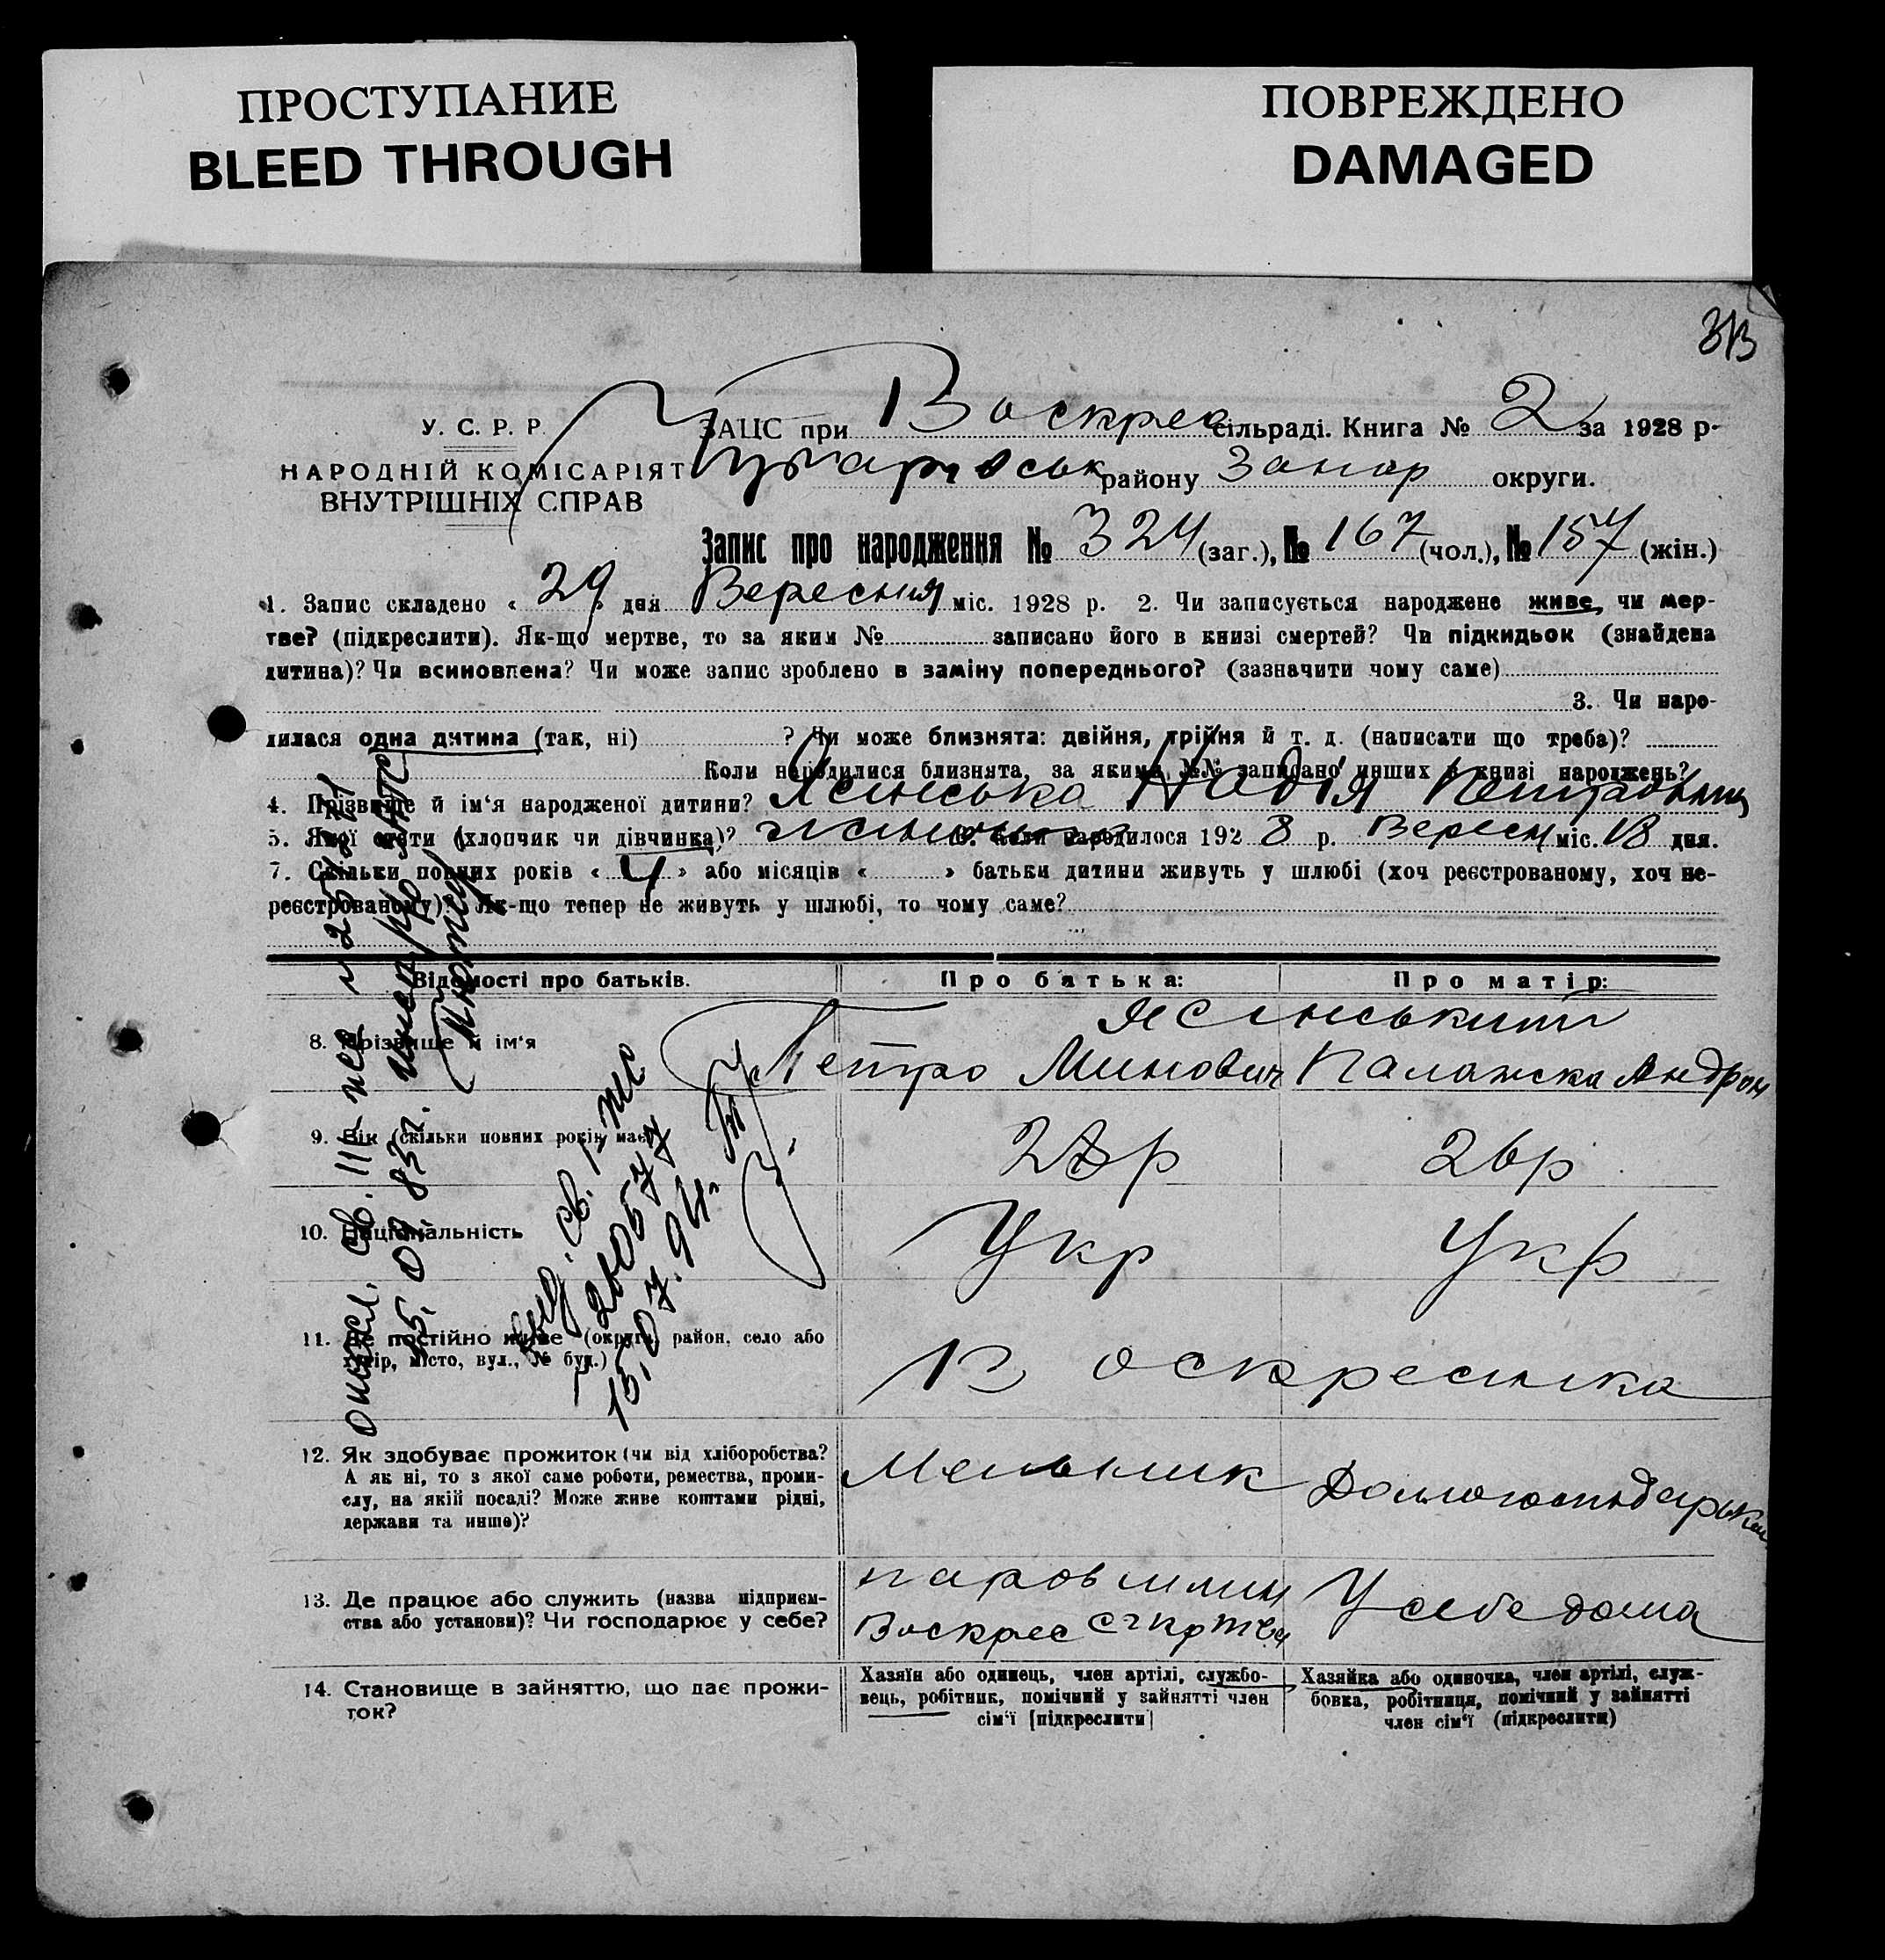 ПРОСТУПАНИЕ
BLEED THROUGH
ПОВРЕЖДЕНО
DAMAGED
313
У. С. Р. Р.
НАРОДНІЙ КОМІСАРІЯТ
ВНУТРІШНІХ СПРАВ
ЗАЦС при Воскрес сільраді. Книга № 2 за 1928 р.
району Запор округи.
Запис про народження № 324 (заг.), № 167 (чол.), № 157 (жін.)
1. Запис складено « 29 » дня Вересня міс. 1928 р. 2. Чи записується народжене живе, чи мер-
тве? (підкреслити). Як-що мертве, то за яким № записано його в книзі смертей? Чи підкидьок (знайдена
дитина)? Чи всиновлена? Чи може запис зроблено в заміну попереднього? (зазначити чому саме)
3. Чи наро-
дилася одна дитина (так, ні) ? Чи може близнята: двійня, трійня й т. д. (написати що треба)?
Коли народилися близнята, за якими №№ записано инших в книзі народжень?
4. Прізвище й ім‘я народженої дитини? Ясінська Надія Петравьна
5. Якої статі (хлопчик чи дівчинка)? 6. Коли народилося 1928 р. Вересн міс. 18 дня.
7. Скільки повних років « 4 » або місяців « » батьки дитини живуть у шлюбі (хоч реєстрованому, хоч не-
реєстрованому)? Як-що тепер не живуть у шлюбі, то чому саме?
Відомості про батьків. Про батька: Про матір:
8. Прізвище й ім‘я
Ясінськими
Петро Минович Палажска Андрон
9. Вік (скільки повних років має) 28р 26р
10. Національність Укр Укр
11. Де постійно живе (округа, район, село або
хутір, місто, вул., № буд.) Воскресинка
12. Як здобуває прожиток (чи від хліборобства?
А як ні, то з якої саме роботи, ремества, проми-
слу, на якій посаді? Може живе коштами рідні,
держави та инше)?
Мельник
13. Де працює або служить (назва підприєм-
ства або установи)? Чи господарює у себе?
паров млин
Воскрес
У себе дома
14. Становище в зайняттю, що дає прожи-
ток?
Хазяїн або одинець, член артілі, службо-
вець, робітник, помічний у зайнятті член
сім‘ї [підкреслити]
Хазяйка або одиночка, член артілі, служ-
бовка, робітниця, помічний у зайнятті
член сім‘ї (підкреслити)